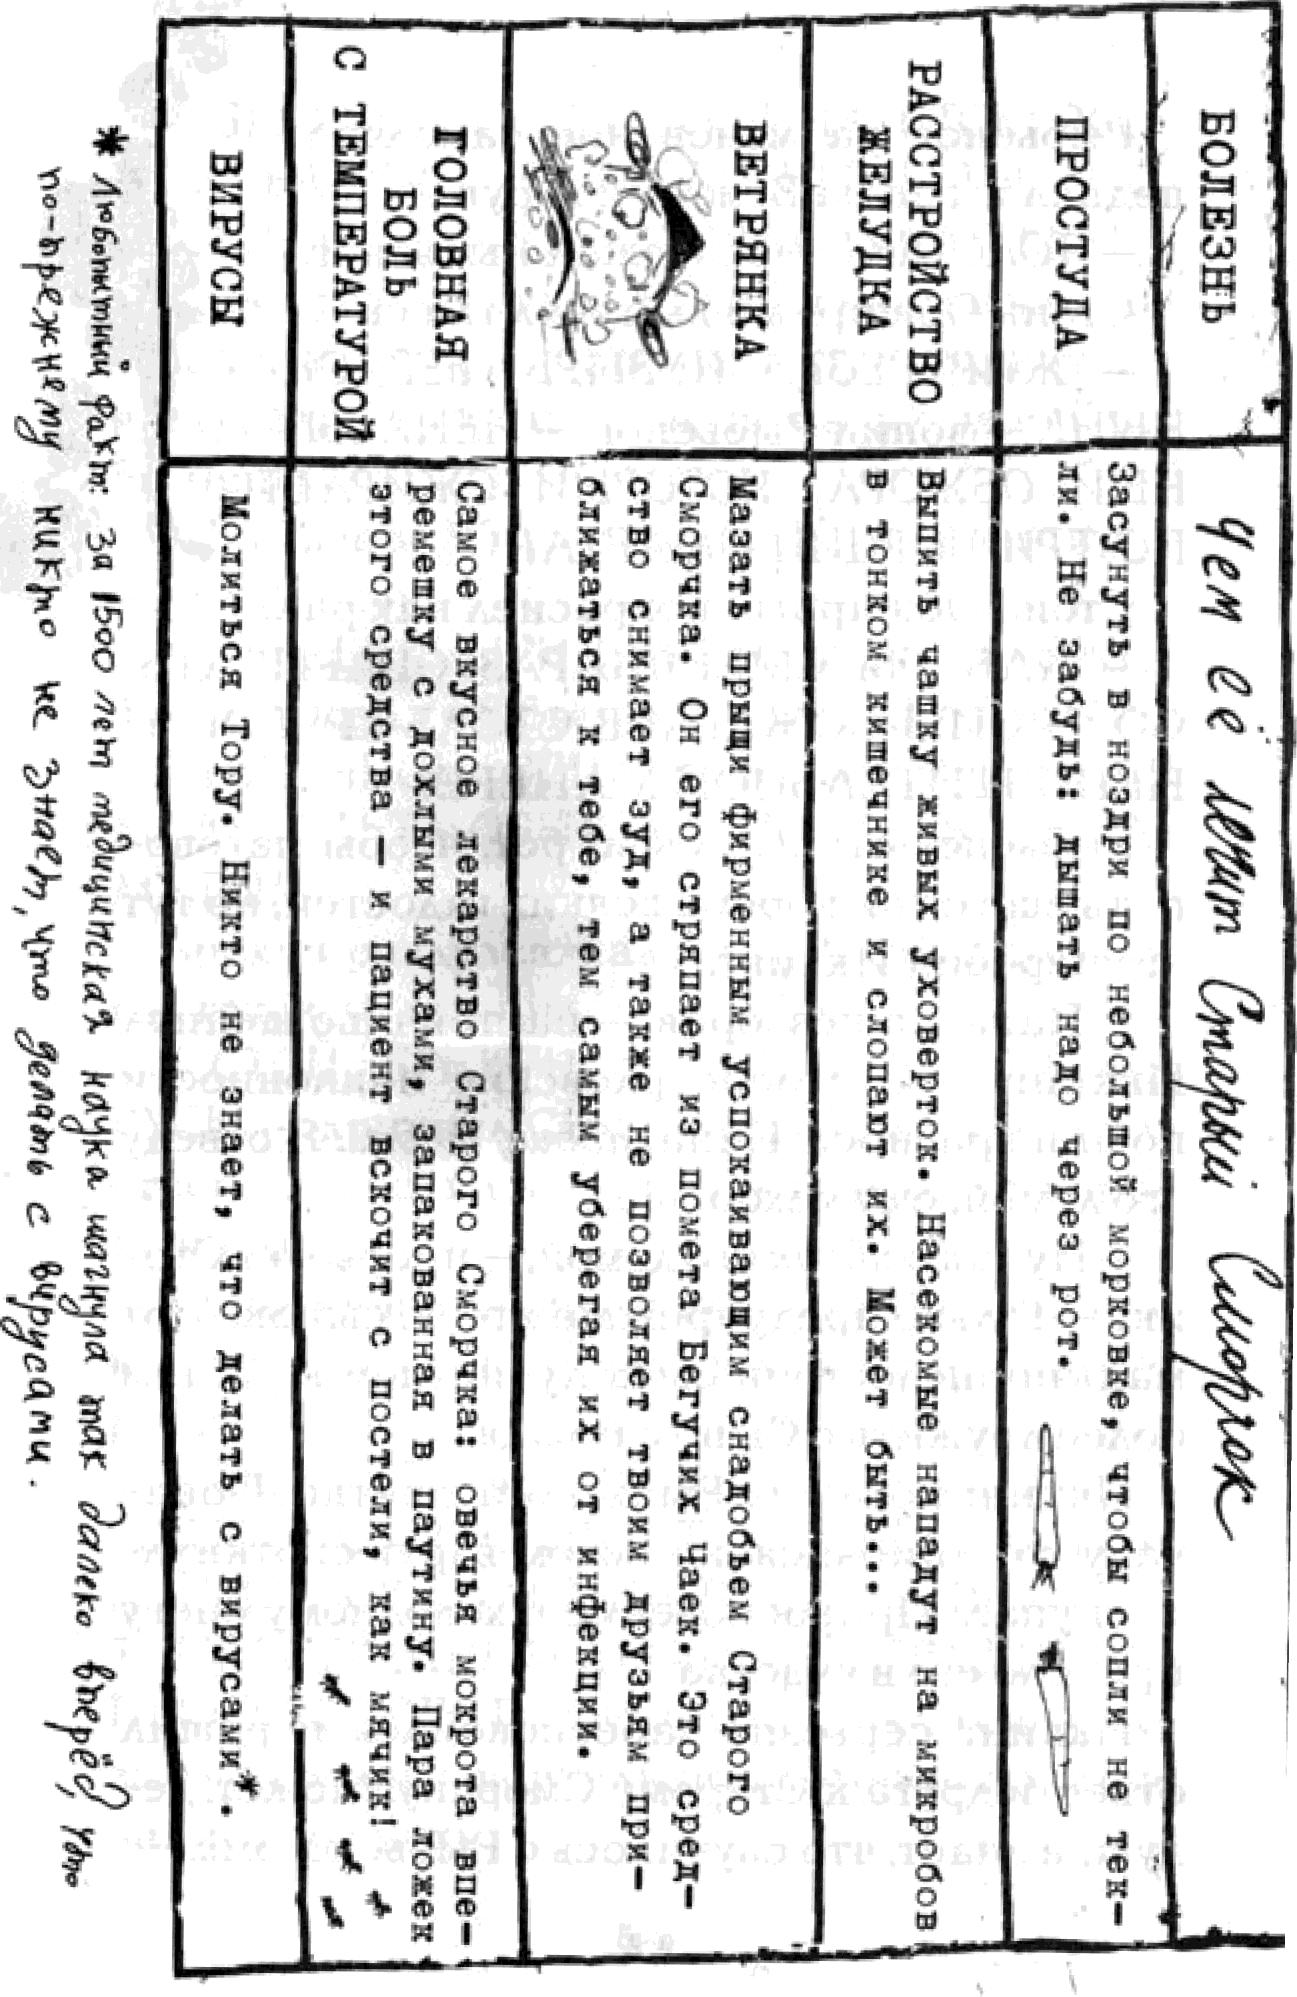 БОЛЕЗНЬ
Чем её лечит Старый Сморчок
ПРОСТУДА
Засунуть в ноздри по небольшой морковке, чтобы сопли не тек-
ли. Не забудь: дышать надо через рот.
РАССТРОЙСТВО
ЖЕЛУДКА
Выпить чашку живых уховерток. Насекомые нападут на микробов
в тонком кишечнике и слопают их. Может быть...
ВЕТРЯНКА
Мазать прыщи фирменным успокаивающим снадобьем Старого
Сморчка. Он его стряпает из помета Бегучих Чаек. Это сред-
ство снимает зуд, а также не позволяет твоим друзьям при-
ближаться к тебе, тем самым уберегая их от инфекции.
ГОЛОВНАЯ
БОЛЬ
С ТЕМПЕРАТУРОЙ
Самое вкусное лекарство Старого Сморчка: овечья мокрота впе-
ремешку с дохлыми мухами, запакованная в паутину. Пара ложек
этого средства — и пациент вскочит с постели, как мячик!
ВИРУСЫ
Молиться Тору. Никто не знает, что делать с вирусами*.
* Любопытный факт: за 1500 лет медицинская наука шагнула так далеко вперёд, что
по-прежнему никто не знает, что делать с вирусами.